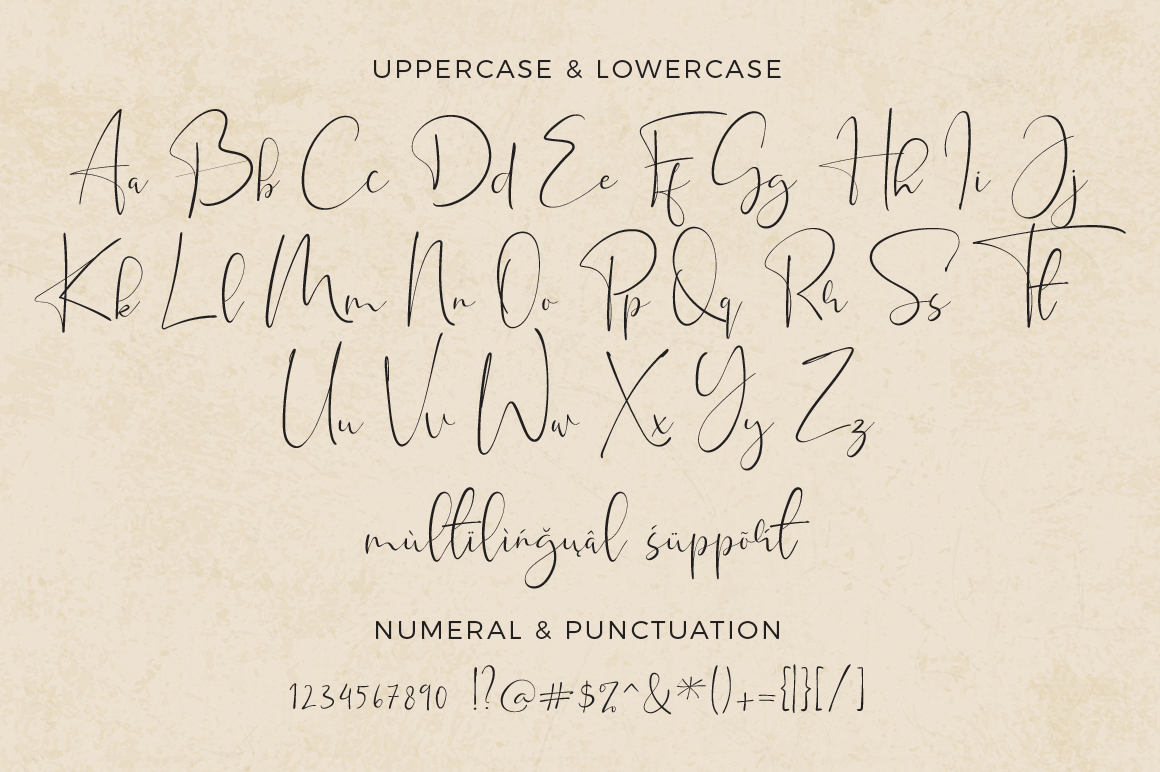 UPPERCASE & LOWERCASE
Aa Bb Cc Dd Ee Ff Gg Hh Ii Jj
Kk Ll Mm Nn Oo Pp Qq Rr Ss Tt
Uu Vv Ww Xx Yy Zz
mùltïlìńğųâl śüppõŕt
NUMERAL & PUNCTUATION
1234567890 !?@#$%^&*()+={|}[/]